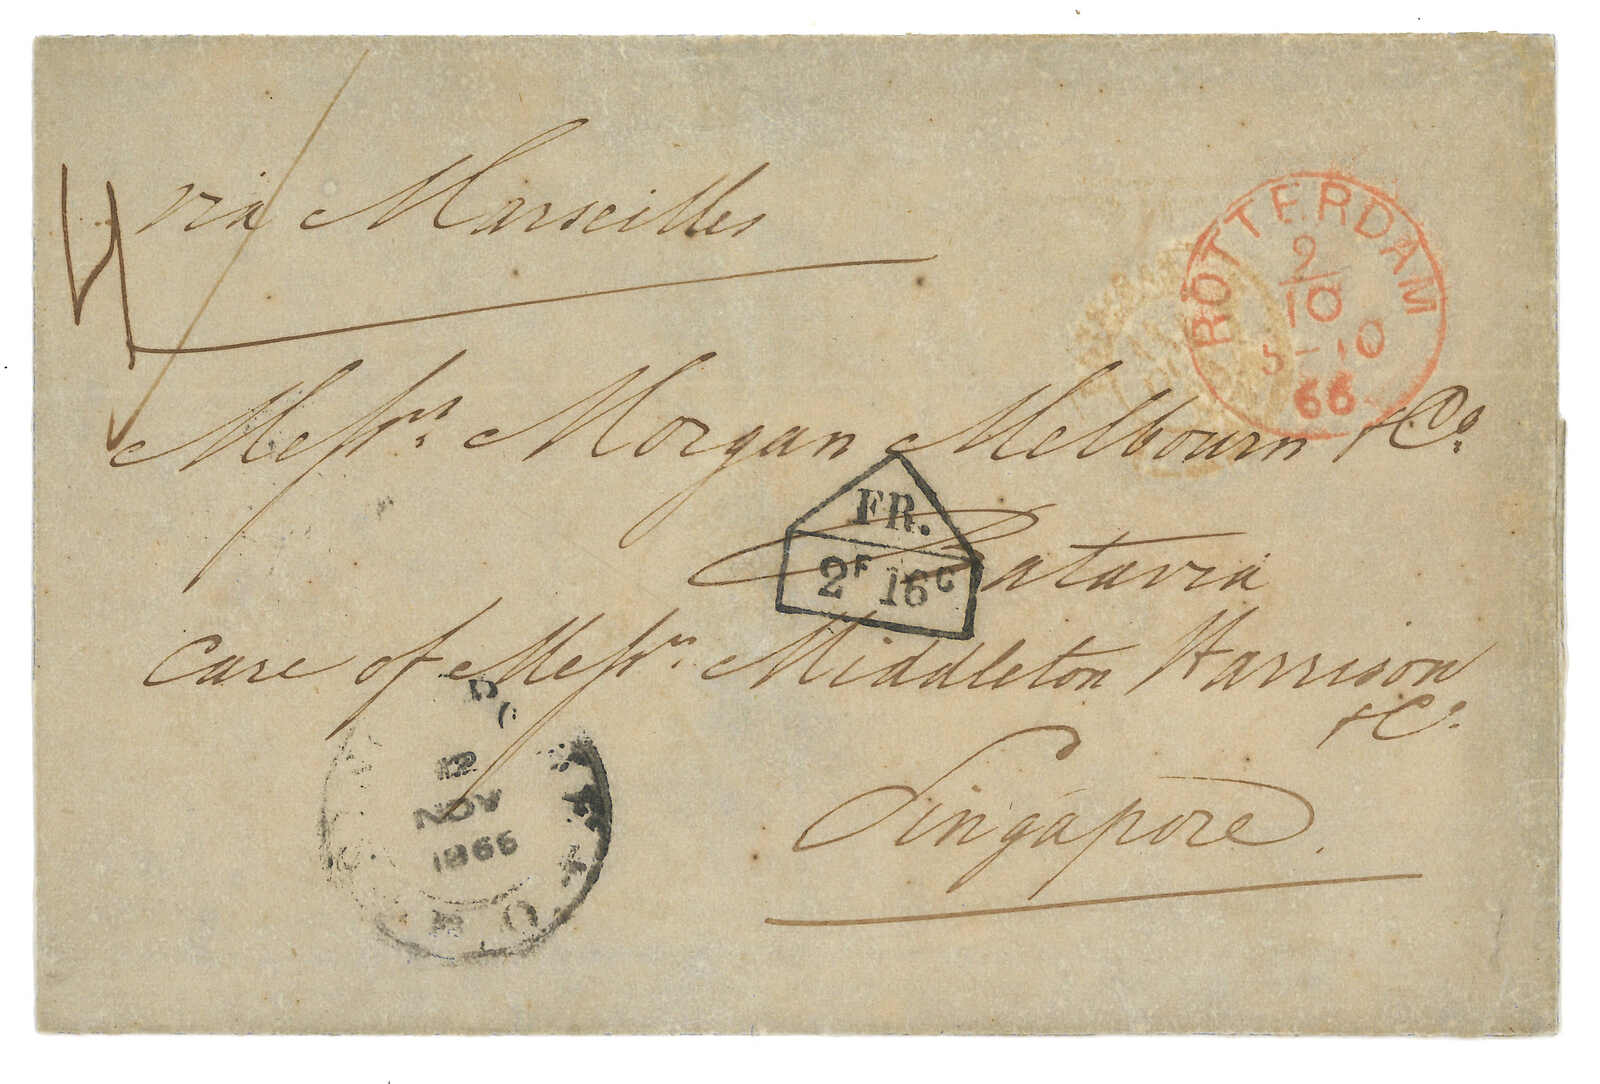 via Marseilles
ROTTERDAM
2/10
66
Messrs. Morgan Melbourn & Co.
FR.
2F 16C
Batavia
care of Messrs. Middleton Harrison
& Co.
Singapore.
12
NOV
1866